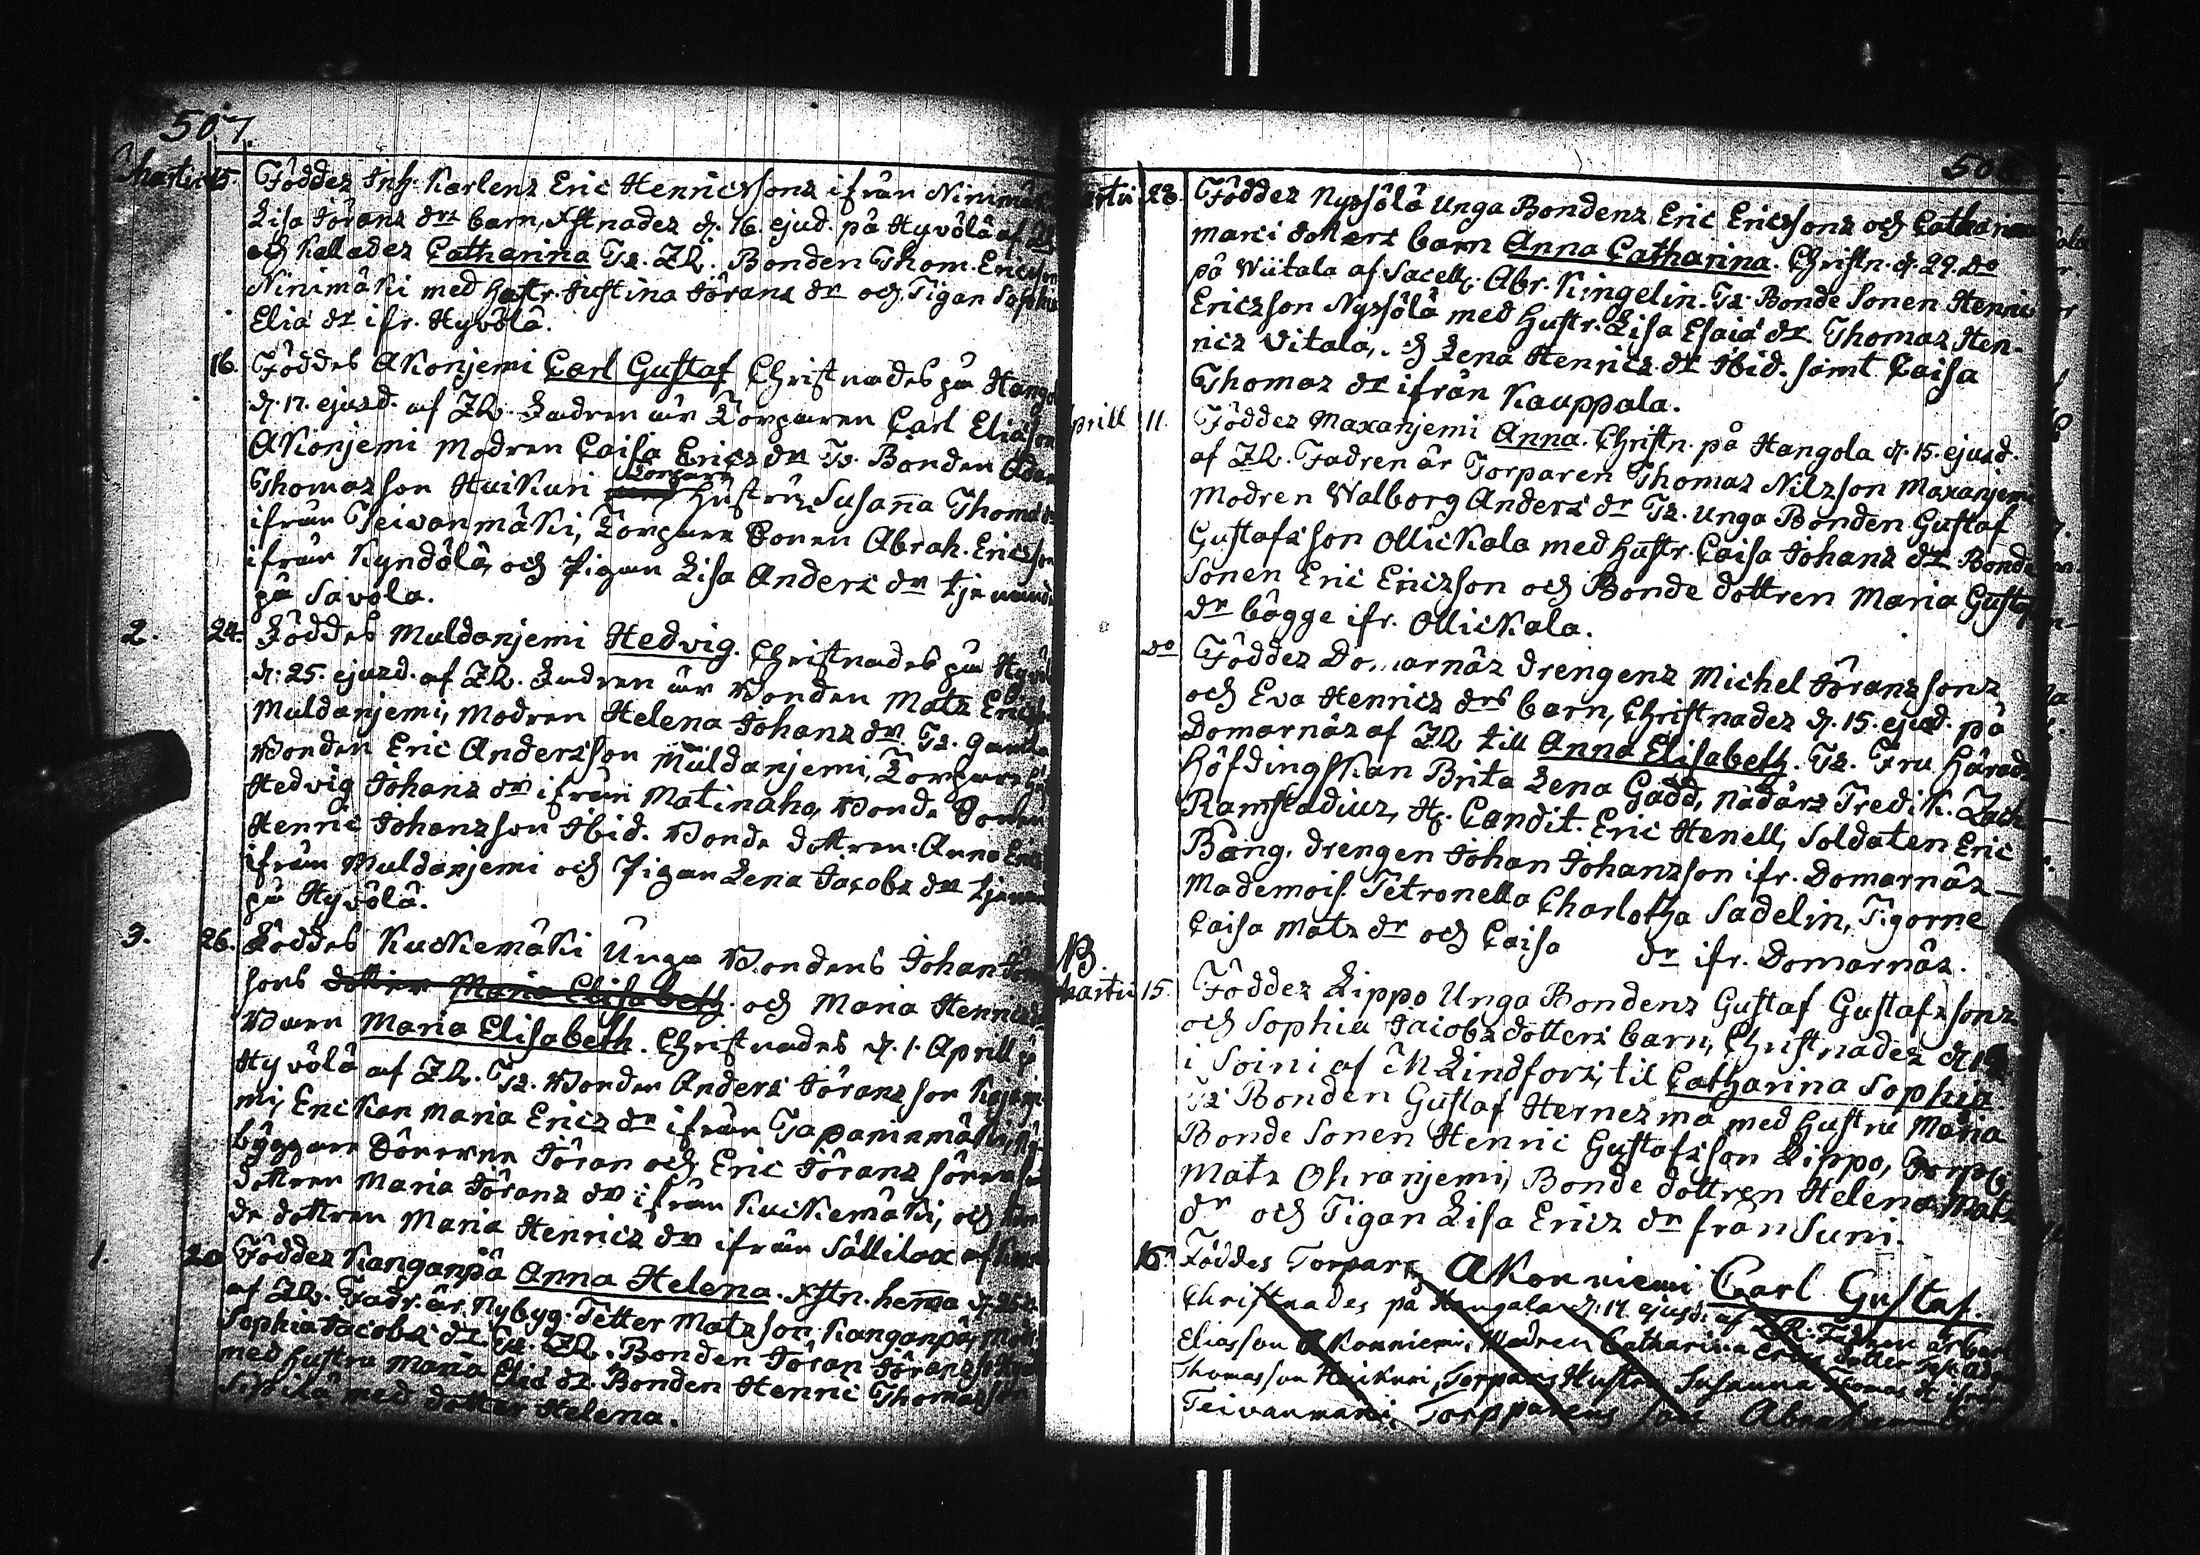 507.
Martii 15. Föddes Inh. Karlens Eric Henricssons ifrån Ninimäki
Lisa Jörans drs barn, Xstnades d. 16. ejud. på Hyvölä af
och kallades Catharina Ts. ZR. Bonden Thom. Ericson
Ninimäki med Hustr. Justina Jörans dr och Pigan Sophia
Eliæ dr ifr. Hyvölä.
16. Föddes Akonjemi Carl Gustaf Christnades på Hangol
d. 17. ejusd. af ZR. Fadren är Torparen Carl Eliasson
Akonjemi Modren Caisa Erics dr Ts. Bonden Adam
Thomasson Huikuri Torpare Hustrun Susanna Thomas
ifrån Teivanmäki, Torpare Sonen Abrah. Ericsson
ifrån Kyndölä, och Pigan Lisa Anders dr tjenande
på Savola.
2. 24. Föddes Muldanjemi Hedvig. Christnades på Hyvö
d. 25. ejusd. af ZR. Fadren är Bonden Mats Erics
Muldanjemi, Modren Helena Johans dr Ts. Gamla
Bonden Eric Andersson Muldanjemi, Torpare Hu
Hedvig Johans dr ifrån Matinaho, Bonde Sonen
Henric Johansson Ibid. Bonde dottren Anna Erics
ifrån Muldanjemi och Pigan Lena Jacobs dr tjenan
på Hyvölä.
3. 26. Föddes Kuckemäki Unga Bondens Johan Jöran
sons dotter Maria Elisabeth och Maria Henrics
Barn Maria Elisabeth. Christnades d. 1. Aprill på
Hyvölä af ZR. Ts. Bonden Anders Jöransson Kajani
mi, Enckan Maria Erics dr ifrån Tapaninmäki, Ny
byggare Sönerne Jöran och Eric Jörans söner
dottren Maria Jörans dr ifrån Kuckemäki, och Bon
de dottren Maria Henrics dr ifrån Sällilax af
1. 20 Föddes Kanganpä Anna Helena. Xstn. hema d. 25
af ZR. Fadr. är Nybyg. Petter Matsson Kanganpä, Mod
Sophia Jacobs dr Ts. ZR. Bonden Jöran Jöransson
med Hustru Maria Eliæ dr. Bonden Henric Thomasson
Sipilä med dotter Helena.
508
Martii 28. Föddes Nyssölä Unga Bondens Eric Ericssons och Catharina
Marci dotters barn Anna Catharina. Christn. d. 29. do
på Wiitala af Sacell. Abr. Kingelin. Ts. Bonde Sonen Henric
Ericsson Nyssölä med Hustr. Lisa Esaiæ dr. Thomas Hen-
rics Vitala, och Lena Henrics dr Ibid. samt Caisa
Thomas dr ifrån Kauppala.
Aprill 11. Föddes Maxanjemi Anna. Christn. på Hangola d. 15. ejusd.
af ZR. Fadren är Torparen Thomas Nilsson Maxanjemi
Modren Walborg Anders dr Ts. Unga Bonden Gustaf
Gustafsson Ollickala med Hustr. Caisa Johans dr Bonde
Sonen Eric Ericsson och Bonde dottren Maria Gustaf
dr bägge ifr. Ollickala.
do Föddes Domarnäs drengens Michel Jöranssons
och Eva Henrics drs barn, Christnades d. 15. ejusd. på
Domarnäs af ZR till Anna Elisabeth. Ts. Fru Härads
Höfdingskan Brita Lena Gadd, nådårs Predik. Zach
Ramstadius, H. Candit. Eric Henell, Soldaten Eric
Bång, drengen Johan Johansson ifr. Domarnäs
Mademois. Petronella Charlotta Sadelin, Pigorne
Caisa Mats dr och Caisa dr ifr. Domarnäs.
NB.
Martii 15. Föddes Lippo Unga Bondens Gustaf Gustafssons
och Sophia Jacobs dotters barn, Christnades d.
i Soini af M Lindfors, til Catharina Sophia
Ts Bonden Gustaf Hernesma med Hustru Maria
Bonde Sonen Henric Gustafsson Lippo, Torp.
Mats Ohranjemi, Bonde dottren Helena Mats
dr och Pigan Lisa Erics dr från Suni.
16 Föddes Torpare Akonniemi Carl Gustaf.
Christnades på Hangala d. 17. ejusd. af ZR. Fadren är Carl
Eliasson Akonniemi, Modren Catharina Erics dotter
Thomasson Huikuri, Torpars Hustru Susanna Thomas dr ifrån
Teivanmäki, Torpparens son Abraham